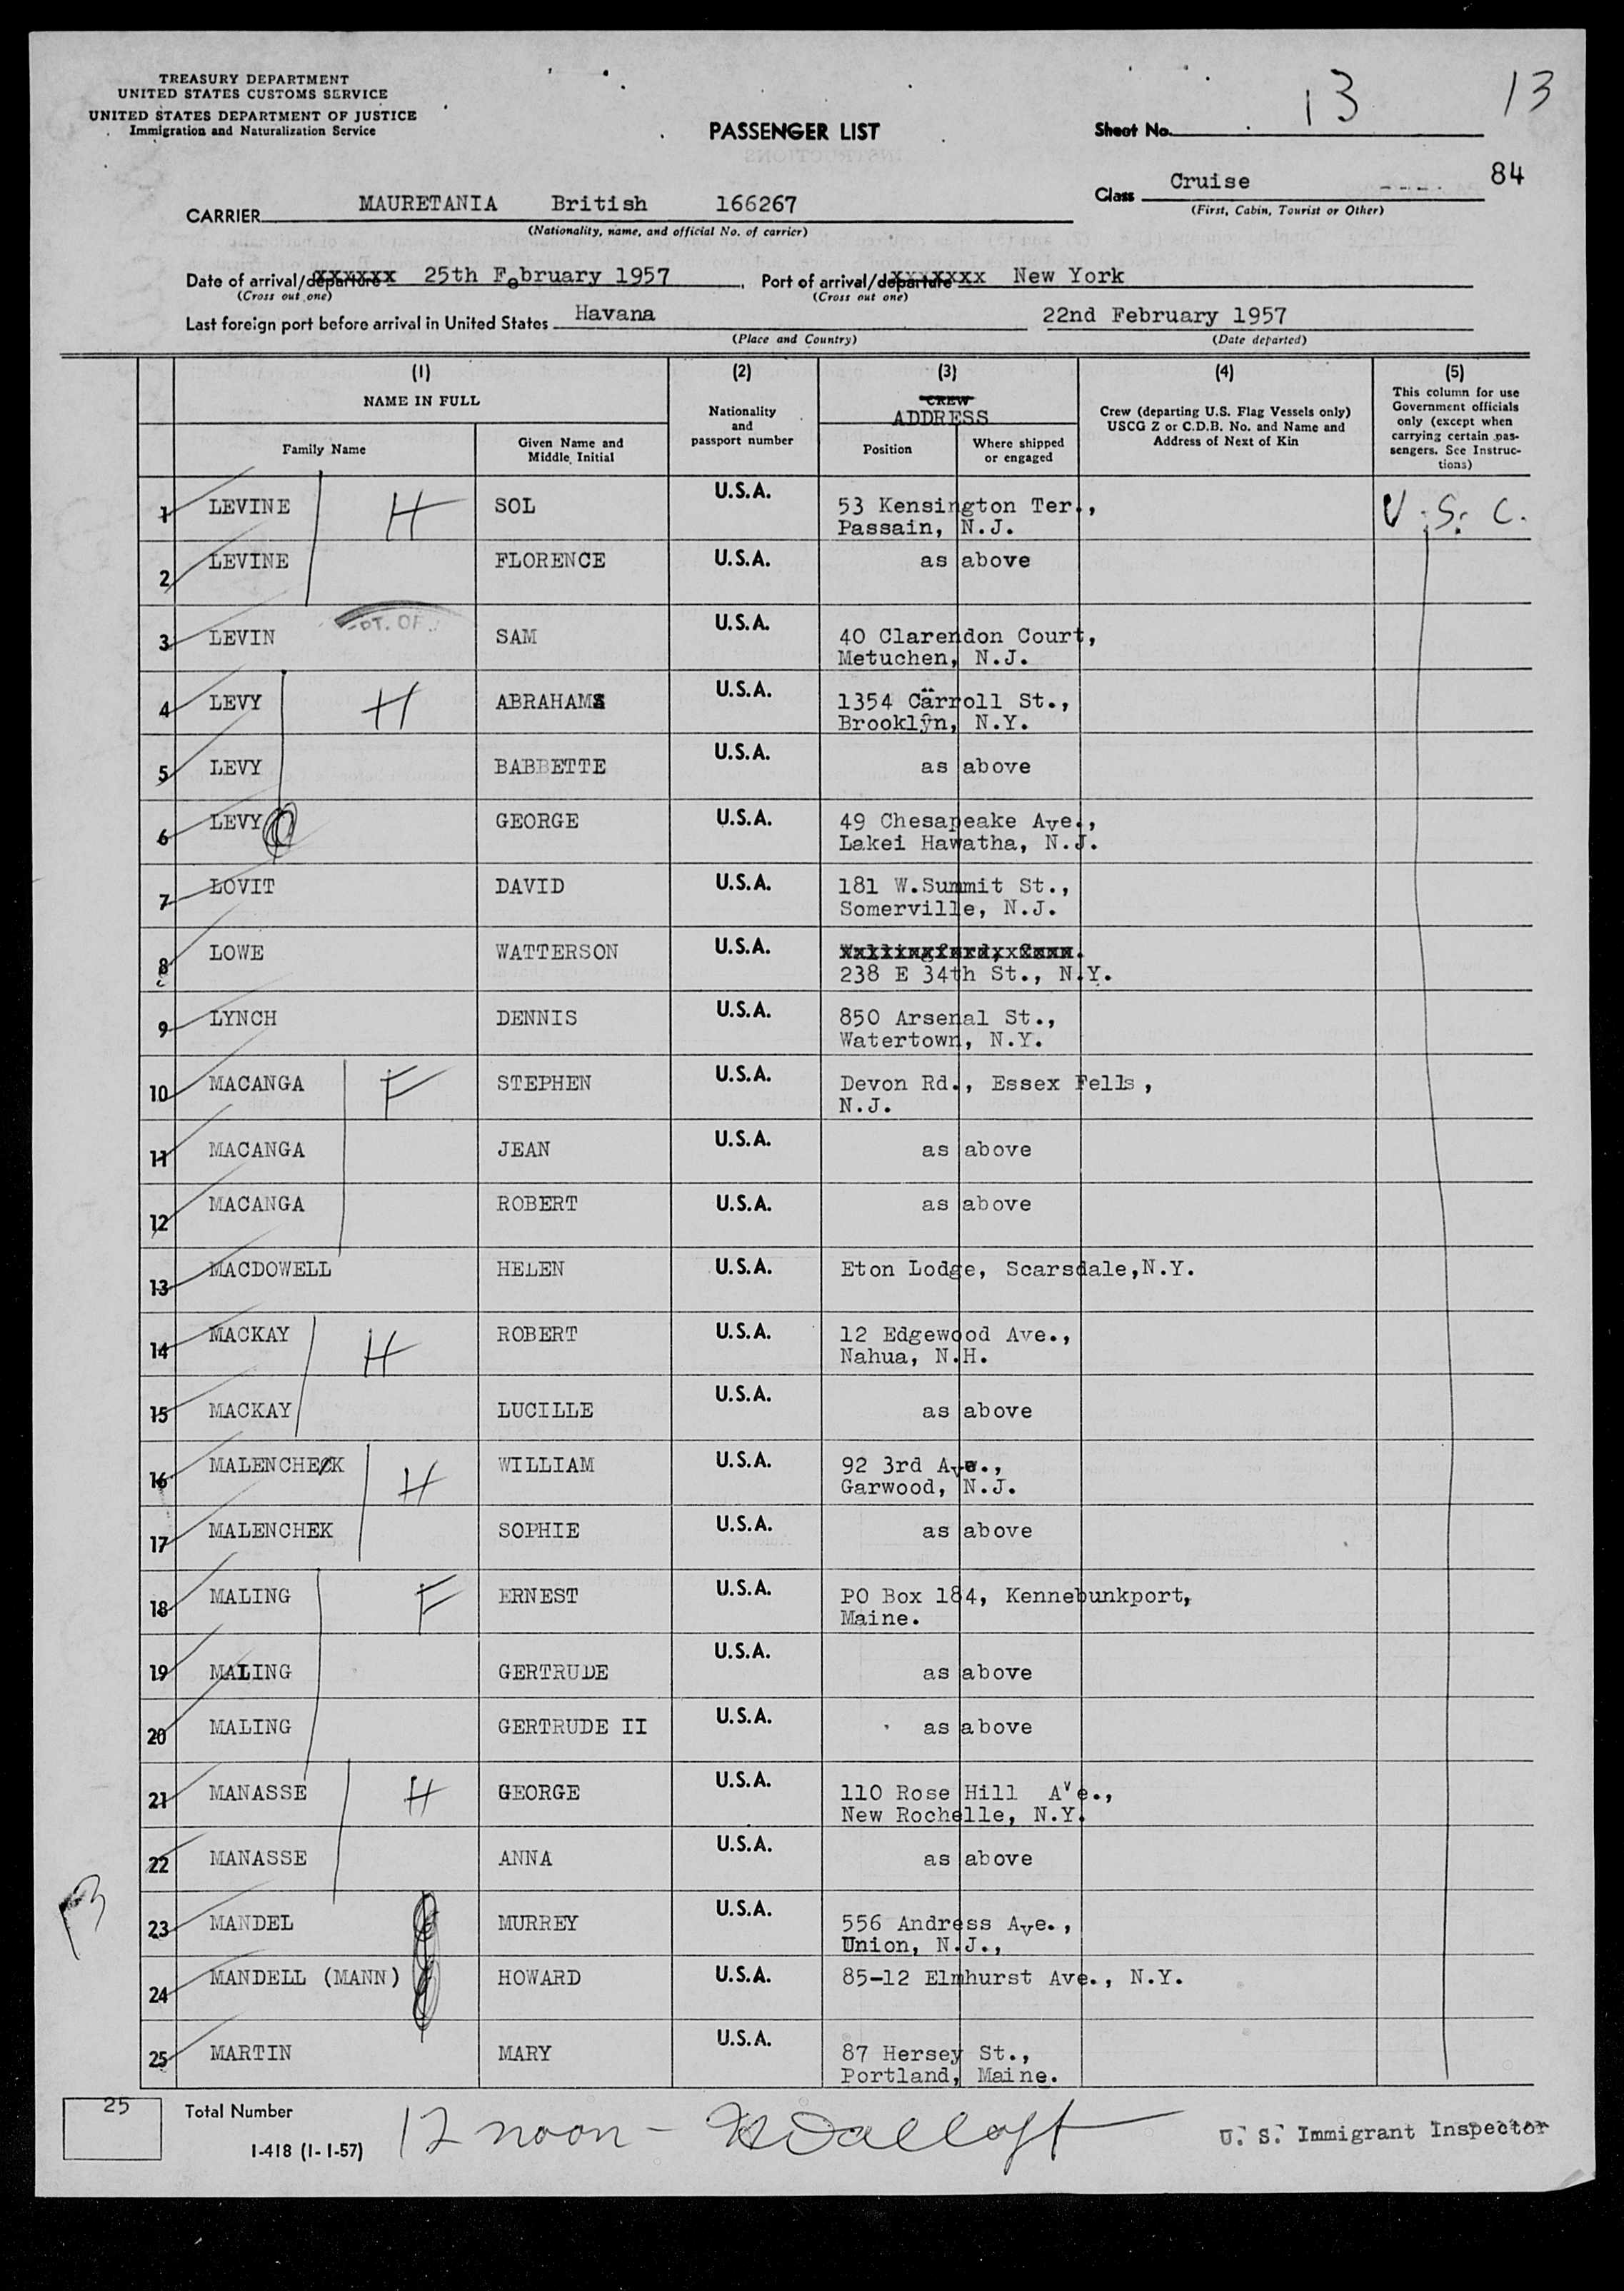 TREASURY DEPARTMENT
UNITED STATES CUSTOMS SERVICE
UNITED STATES DEPARTMENT OF JUSTICE
Immigration and Naturalization Service
PASSENGER LIST
Sheet No. 13 13
Class Cruise 84
(First, Cabin, Tourist or Other)
CARRIER MAURETANIA British 166267
(Nationality, name, and official No. of carrier)
Date of arrival/departure 25th February 1957. Port of arrival/departure New York
(Cross out one) (Cross out one)
Last foreign port before arrival in United States Havana 22nd February 1957
(Place and Country) (Date departed)
(1) (2) (3) (4) (5)
NAME IN FULL
Family Name
Given Name and
Middle Initial
Nationality
and
passport number
CREW
ADDRESS
Position
Where shipped
or engaged
Crew (departing U.S. Flag Vessels only)
USCG Z or C.D.B. No. and Name and
Address of Next of Kin
This column for use
Government officials
only (except when
carrying certain pas-
sengers. See Instruc-
tions)
1 LEVINE H SOL U.S.A. 53 Kensington Ter., U.S.C.
Passain, N.J.
2 LEVINE FLORENCE U.S.A. as above
3 LEVIN SAM U.S.A. 40 Clarendon Court,
Metuchen, N.J.
4 LEVY H ABRAHAM U.S.A. 1354 Carroll St.,
Brooklyn, N.Y.
5 LEVY BABBETTE U.S.A. as above
6 LEVY GEORGE U.S.A. 49 Chesapeake Ave.,
Lakei Hawatha, N.J.
7 LOVIT DAVID U.S.A. 181 W.Summit St.,
Somerville, N.J.
8 LOWE WATTERSON U.S.A.
238 E 34th St., N.Y.
9 LYNCH DENNIS U.S.A. 850 Arsenal St.,
Watertown, N.Y.
10 MACANGA F STEPHEN U.S.A. Devon Rd., Essex Fells,
N.J.
11 MACANGA JEAN U.S.A. as above
12 MACANGA ROBERT U.S.A. as above
13 MACDOWELL HELEN U.S.A. Eton Lodge, Scarsdale,N.Y.
14 MACKAY H ROBERT U.S.A. 12 Edgewood Ave.,
Nahua, N.H.
15 MACKAY LUCILLE U.S.A. as above
16 MALENCHECK H WILLIAM U.S.A. 92 3rd Ave.,
Garwood, N.J.
17 MALENCHEK SOPHIE U.S.A. as above
18 MALING F ERNEST U.S.A. PO Box 184, Kennebunkport,
Maine.
19 MALING GERTRUDE U.S.A. as above
20 MALING GERTRUDE II U.S.A. as above
21 MANASSE H GEORGE U.S.A. 110 Rose Hill Ave.,
New Rochelle, N.Y.
22 MANASSE ANNA U.S.A. as above
23 MANDEL MURREY U.S.A. 556 Andress Ave.,
Union, N.J.,
24 MANDELL (MANN) HOWARD U.S.A. 85-12 Elmhurst Ave., N.Y.
25 MARTIN MARY U.S.A. 87 Hersey St.,
Portland, Maine.
25 Total Number
I-418 (1-1-57)
12 noon -
U. S. Immigrant Inspector